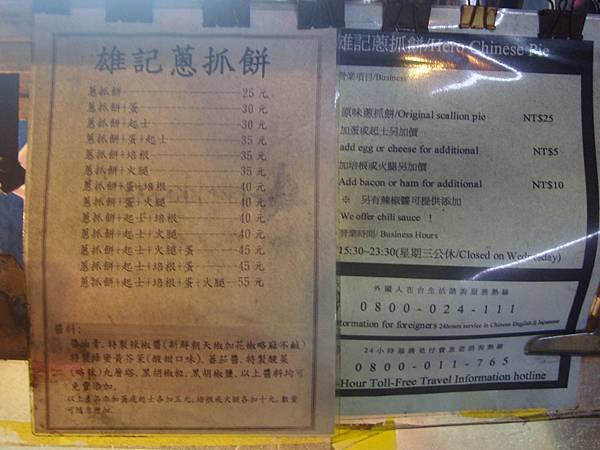 雄記蔥抓餅
蔥抓餅 25 元
蔥抓餅+蛋 30 元
蔥抓餅+起士 30 元
蔥抓餅+蛋+起士 35 元
蔥抓餅+培根 35 元
蔥抓餅+火腿 35 元
蔥抓餅+蛋+培根 40 元
蔥抓餅+蛋+火腿 40 元
蔥抓餅+起士+培根 40 元
蔥抓餅+起士+火腿 40 元
蔥抓餅+起士+火腿+蛋 45 元
蔥抓餅+起士+培根+蛋 45 元
蔥抓餅+起士+培根+蛋+火腿 55 元
醬料:
醬油膏,特製辣椒醬(新鮮朝天椒加花椒略麻不鹹)
特製蜂蜜黃芥茉(酸甜口味),蕃茄醬,特製酸菜
(略辣)九層塔,黑胡椒粒,黑胡椒鹽,以上醬料均可
免費添加.
以上產品添加蛋或起士各加五元,培根或火腿各加十元,數量
可隨意增加.
雄記蔥抓餅/Hero Chinese Pie
營業項目/Business
原味蔥抓餅/Original scallion pie NT$25
加蛋或起士另加價
add egg or cheese for additional NT$5
加培根或火腿另加價
Add bacon or ham for additional NT$10
※ 另有辣椒醬可提供添加
We offer chili sauce !
營業時間/ Business Hours
15:30~23:30(星期三公休/Closed on Wednesday)
外國人在台生活諮詢服務熱線
0800-024-111
formation for foreigners 24hours service in Chinese English & Japanese
24小時免付費旅遊諮詢熱線
0800-011-765
-Hour Toll-Free Travel Information hotline